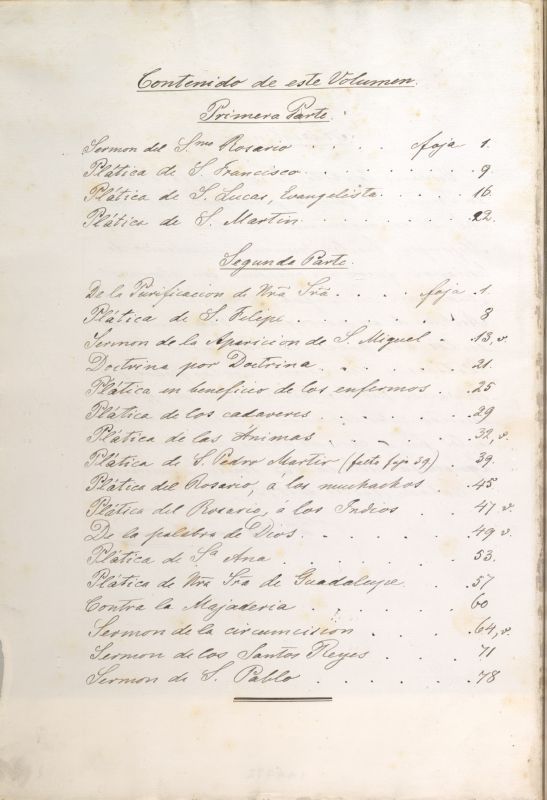 Contenido de este Volumen.
Primera Parte.
Sermon del S.mo Rosario . . . . foja 1.
Plática de S. Francisco . . . . . . 9
Plática de S. Lucas, Evangelista . . . . 16.
Plática de S. Martin . . . . . . 22.
Segunda Parte.
De la Purificacion de Nrã Srã . . . . foja . 1.
Plática de S. Felipe . . . . . . . 3
Sermon de la Aparicion de S. Miguel . . 13, v.
Doctrina por Doctrina . . . . . 21.
Plática en beneficio de los enfermos . . 25
Plática de los cadaveres . . . . . 29
Plática de las Animas . . . . . 32, v.
Plática de S. Pedro Martir (falta foja 39) . 39.
Plática del Rosario, á los muchachos . . 45
Plática del Rosario, á los Indios . . . 47 v.
De la palabra de Dios . . . . . . 49 v.
Plática de S.a Ana . . . . . . . 53.
Plática de Nrã Srã de Guadalupe . . . 57
Contra la Majaderia . . . . . . 60
Sermon de la circumcision . . . . . 64, v.
Sermon de los Santos Reyes . . . . 71
Sermon de S. Pablo . . . . . . 78